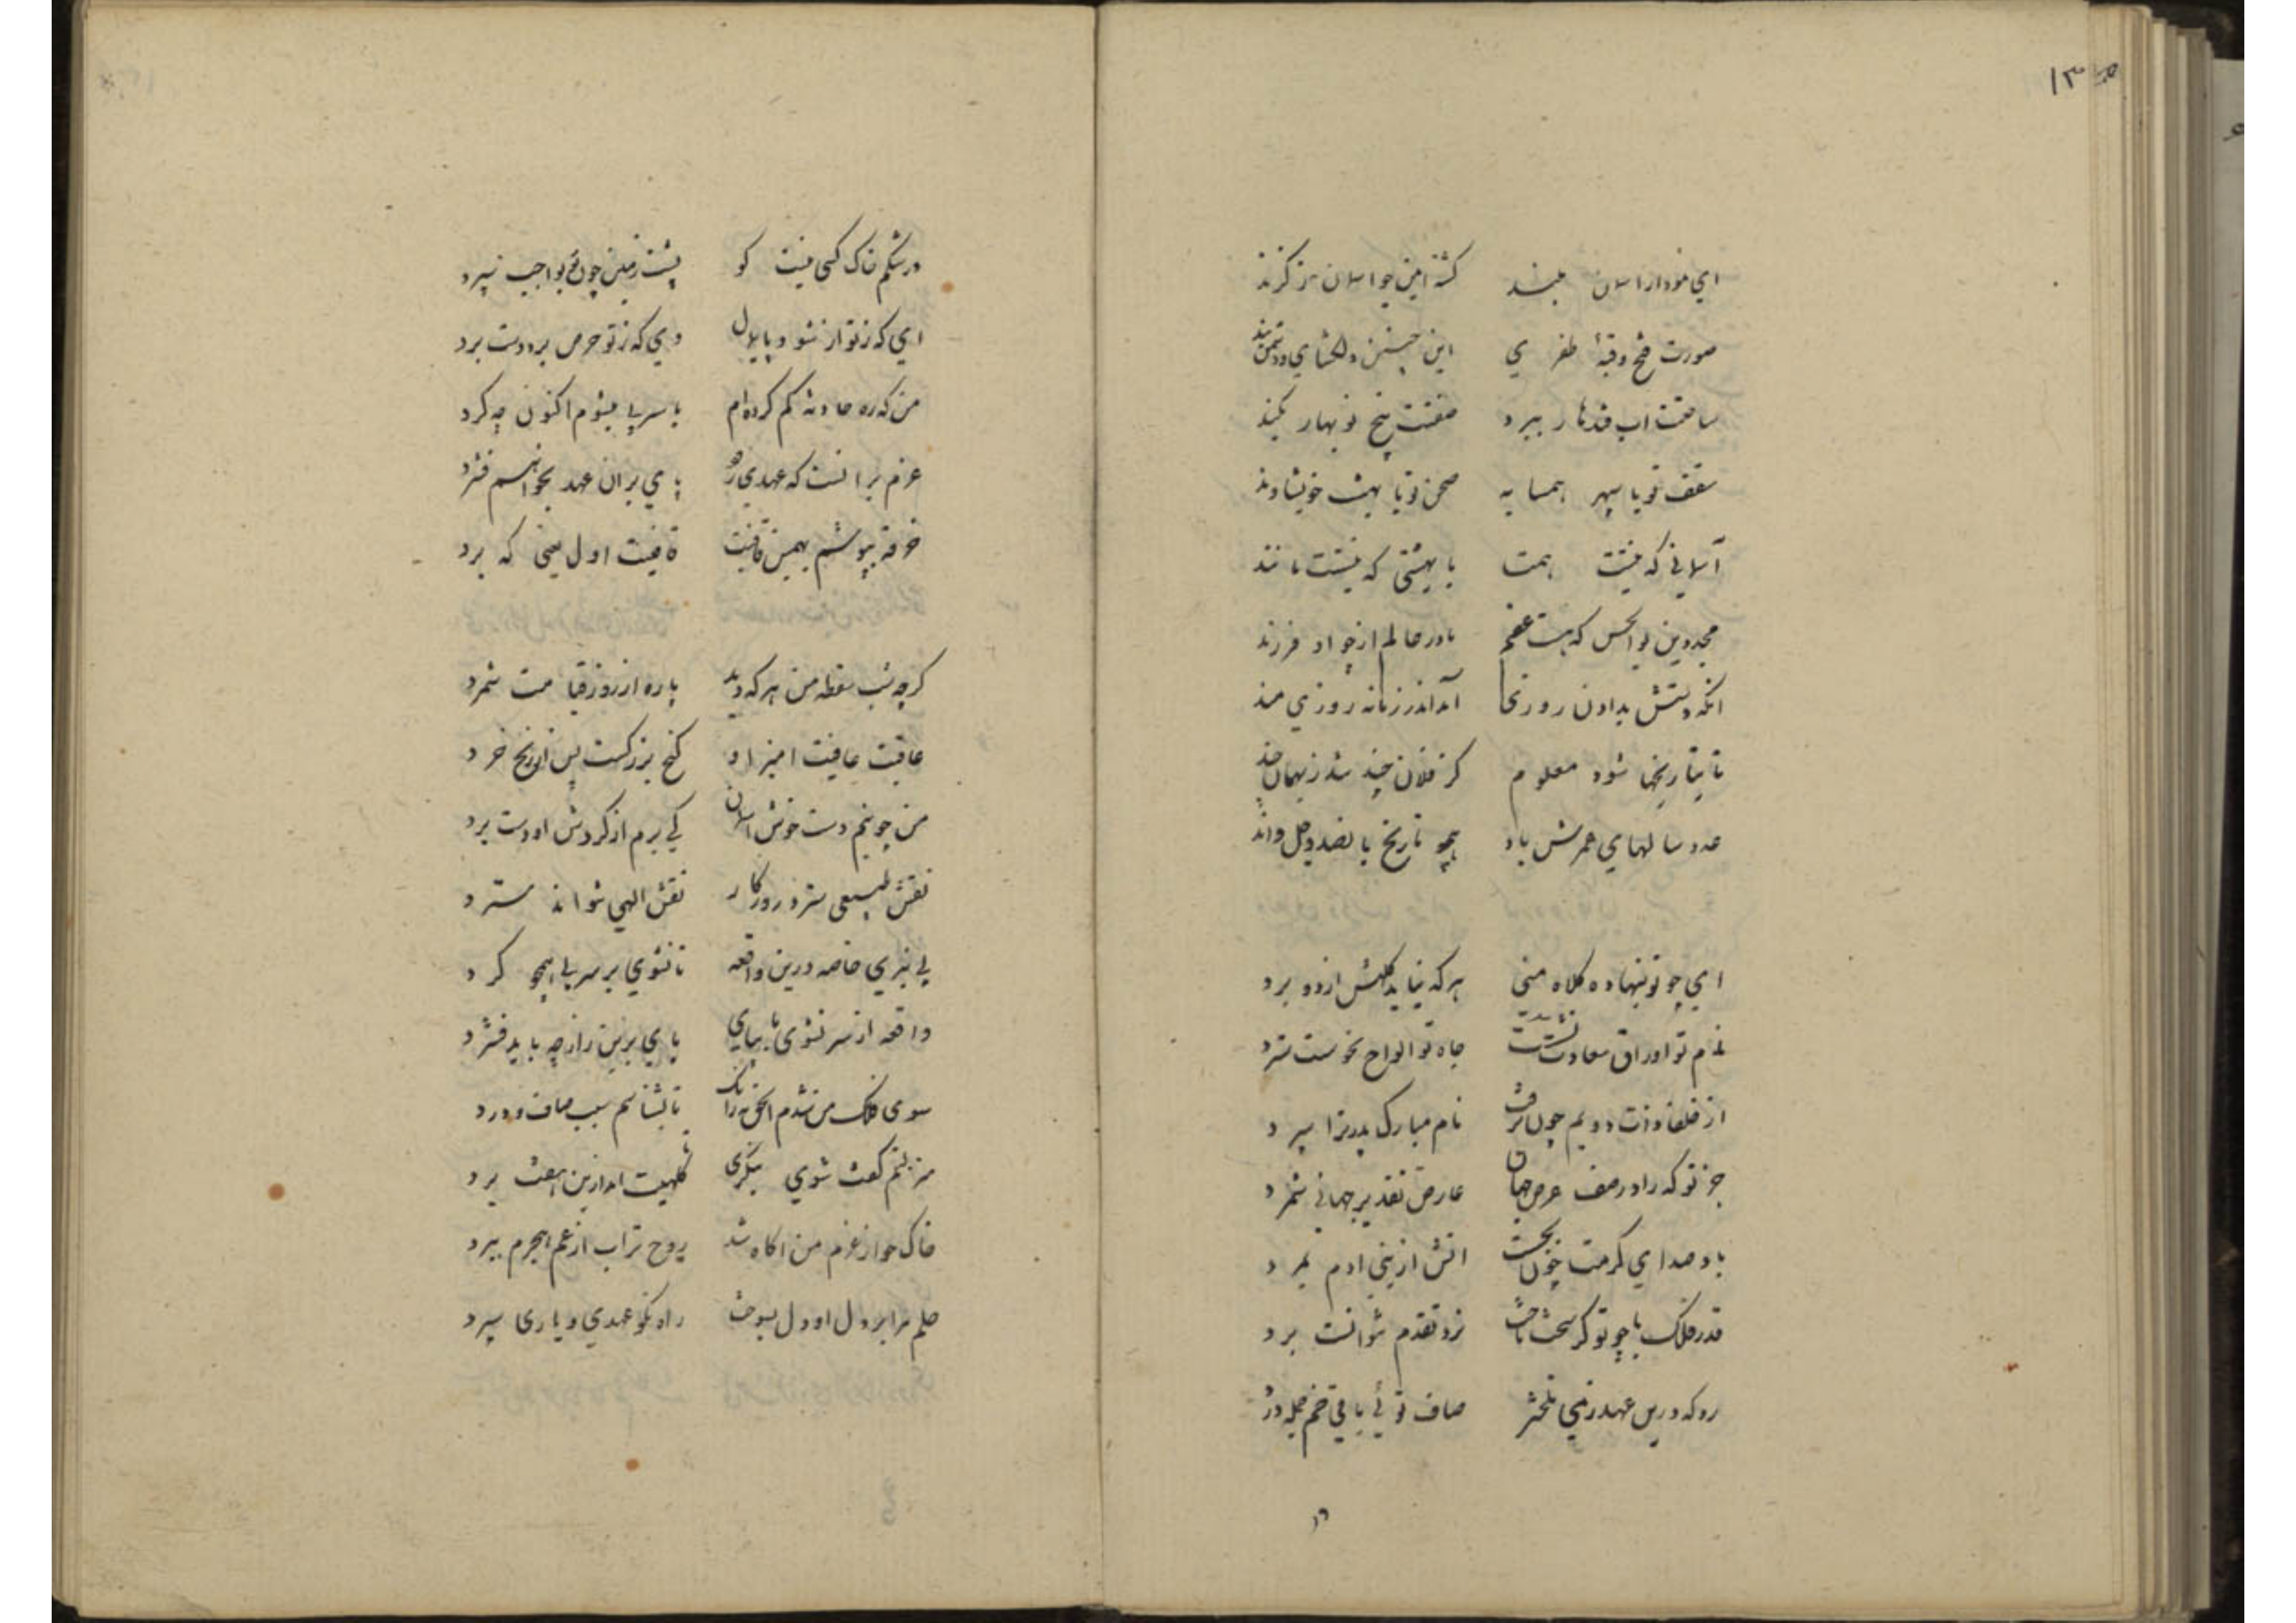 ۱۳۵
ای نمودار اسمان بلند کشته ایمن چو اسمان ز گزند
صورت فتح و قبهٔ ظفری این چنین دلکشای و دشمن بند
ساحتت اب قندهار ببرد صفتت بیخ نوبهار بکند
سقف تو با سپهر همسایه صحن تو با بهشت خویشاوند
آسمانی که نیستت همتا بهشتی که نیستت مانند
مجد دین بوالحسن که هست عقیم مادر عالم از چو او فرزند
انکه دستش بدادن روزیها آمد اندر زمانه روزی مند
تا بتاریخها شود معلوم کز فلان چند شد ز بهمان چند
عدد سالهای عمرش باد همچو تاریخ پانصد و چل واند
ای چو تو ننهاده کلاه منی هر که نیاید کلهش از دو برد
نام تو اوراق سعادت نبشت جاه تو الواح نحوست سترد
از خلفا ذات دویم چون برفت نام مبارک پدر ترا سپرد
جز تو که را در صف عرض جهان عارض تقدیر جهانی شمرد
باد صدای کرمت چون بجست اتش از بنی ادم بمرد
قدر فلک با چو تو کر سخت باخت نرد تقدم نتوانست برد
رو که درین عهد ز می صاف توئی باقی خم جمله درد
۱۶
در شکم خاک کسی نیست کو پشت زمین چون تو بواجب سپرد
ای که ز تو از نشود پایمال وی که ز تو حرص برد دست برد
من که ره حادثه کم کرده‌ام با سر پی میشوم اکنون چه کرد
عزم برانست که عهدی رود پای بران عهد بخواهم فشرد
خرقه بپوشم بهمین قافیت قافیت اول یعنی که برد
کرچه شب سقطه من هر که دید پاره از روز قیامت شمرد
عاقبت عافیت امیز او کنج بزرکست پس از رنج خرد
من چو نیم دست خوش اسمان کی برم از کردش او دست برد
نقش طبیعی سترد روزکار نقش الهی نتواند سترد
پی نبری خاصه درین واقعه تا نشوی بر سر پی همچو کرد
واقعه از سر نشوی تا بپای پای برین راز چه باید فشرد
سوی فلک من نشدم الحق زانک تا بشناسم سبب صاف و درد
منزلتم کفت شوی بنکری تا کلهیت امد ازین هفت برد
خاک چو از عزم من اکاه شد روح تراب از غم هجرم بمرد
حلم مرا بر دل او دل بسوخت راه نکو عهدی و یاری سپرد